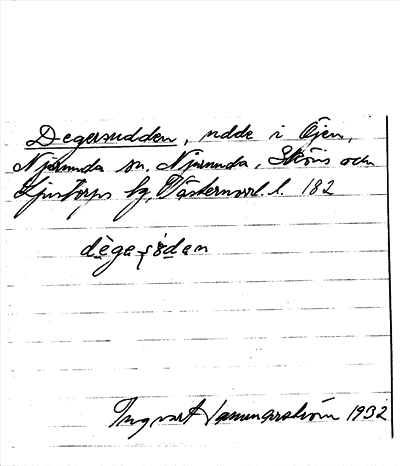 Degersudden, udde i Öjen,
Njurunda sn, Njurunda, Sköns och
Ljustorps tg, Västernorrl. l. 182
dègaʂɵdan
Ingvart Hammarström 1932